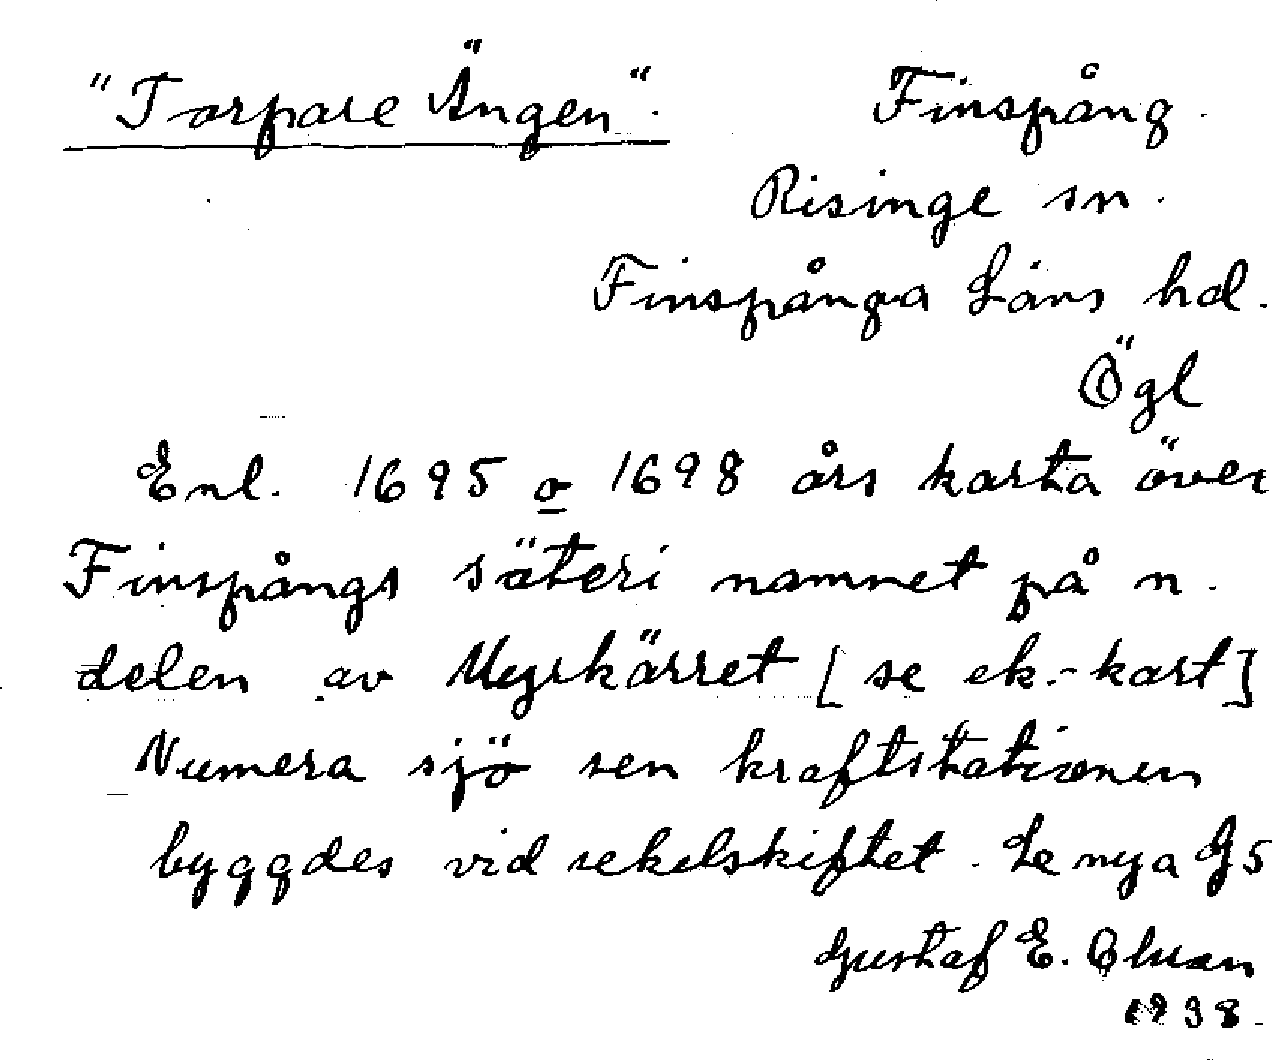 "Torpare Ängen".
Finspång.
Risinge sn.
Finspånga Läns hd.
Ögl
Enl. 1695 o 1698 års karta över
Finspångs säteri namnet på n.
delen av Myrkärret [se ek.-kart]
Numera sjö sen kraftstationen
byggdes vid sekelskiftet. Se nya G5
Gustaf E.
1938.